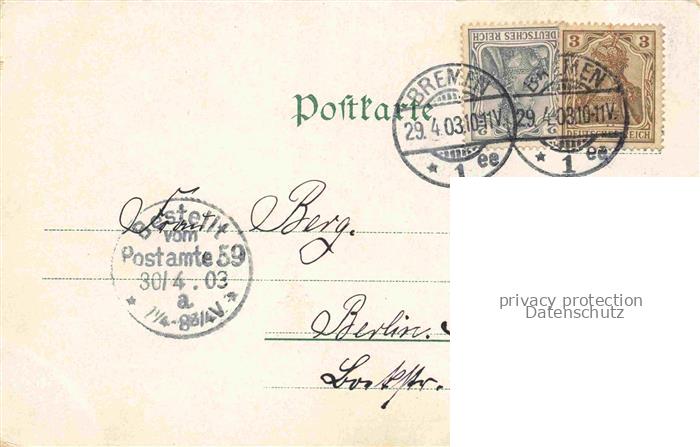 DEUTSCHES REICH
2
2
3
3
DEUTSCHES REICH
Postkarte
BREMEN
29.4.03.10-11V.
* 1 ee
BREMEN
29.4.03.10-11V.
* 1 ee
Bestellt
vom
Postamte 59
30/4.03
a.
* 7 1/4-8 3/4 V *
Frau Berg.
Berlin.
privacy protection
Datenschutz